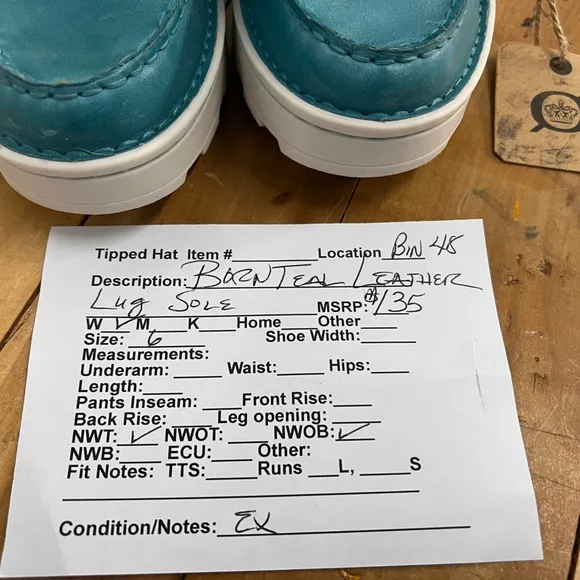 Tipped Hat Item #________ Location Bin 48
Description: Born Teal Leather
Lug Sole MSRP: $135
W ✓ M___ K___ Home___ Other___
Size: 6 Shoe Width:____
Measurements:
Underarm: ____ Waist:____ Hips:____
Length:____
Pants Inseam: ____ Front Rise:____
Back Rise:____ Leg opening: ____
NWT: ✓ NWOT: ____ NWOB: ✓
NWB: ____ ECU:____ Other:
Fit Notes: TTS:____ Runs ___L, ____S
Condition/Notes: EX